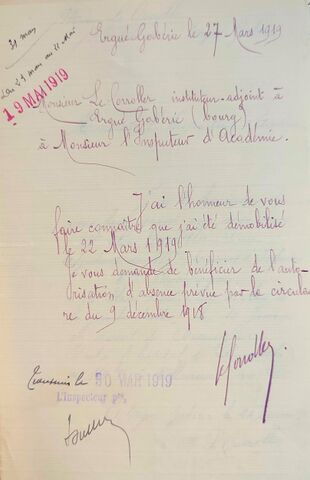 Ergué-Gabéric le 27 Mars 1919
31 mars
Du 29 mars au 21 Mai
19 MAI 1919
Monsieur Le Corroller instituteur-adjoint à
Ergué Gabéric (bourg)
à Monsieur l'Inspecteur d'Académie.
J'ai l'honneur de vous
faire connaître que j'ai été démobilisé
le 22 Mars 1919
Je vous demande de bénéficier de l'auto-
risation d'absence prévue par la circulai
re du 9 décembre 1918
Le Corroller
Transmis le 30 MAR 1919
L'Inspecteur pre,